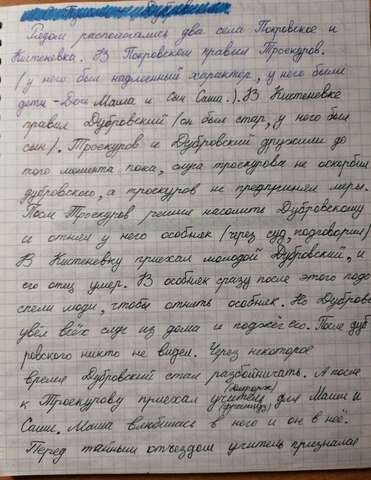 Рядом располагались два села Покровское и
Кистеневка. В Покровском правил Троекуров.
(у него был надменный характер, у него были
дети - Дочь Маша и сын Саша.). В Кистеневке
правил Дубровский (он был стар, у него был
сын). Троекуров и Дубровский дружили до
того момента пока, слуга троекурова не оскорбил
дубровского, а троекуров не предпринял меры.
После Троекуров решил насолить Дубровскому
и отнял у него особняк (через суд, подговорил)
В Кистеневку приехал молодой Дубровский, и
его отец умер. В особняк сразу после этого подо
спели люди, чтобы отнять особняк. Но Дубровс
увёл всех слуг из дома и поджёг его. После дуб
ровского никто не видел. Через некоторое
время Дубровский стал разбойничать. А после
к Троекурову приехал учитель (француз) для Маши и
Саши. Маша влюбилась в него и он в неё.
Перед тайным отъездом учитель признался